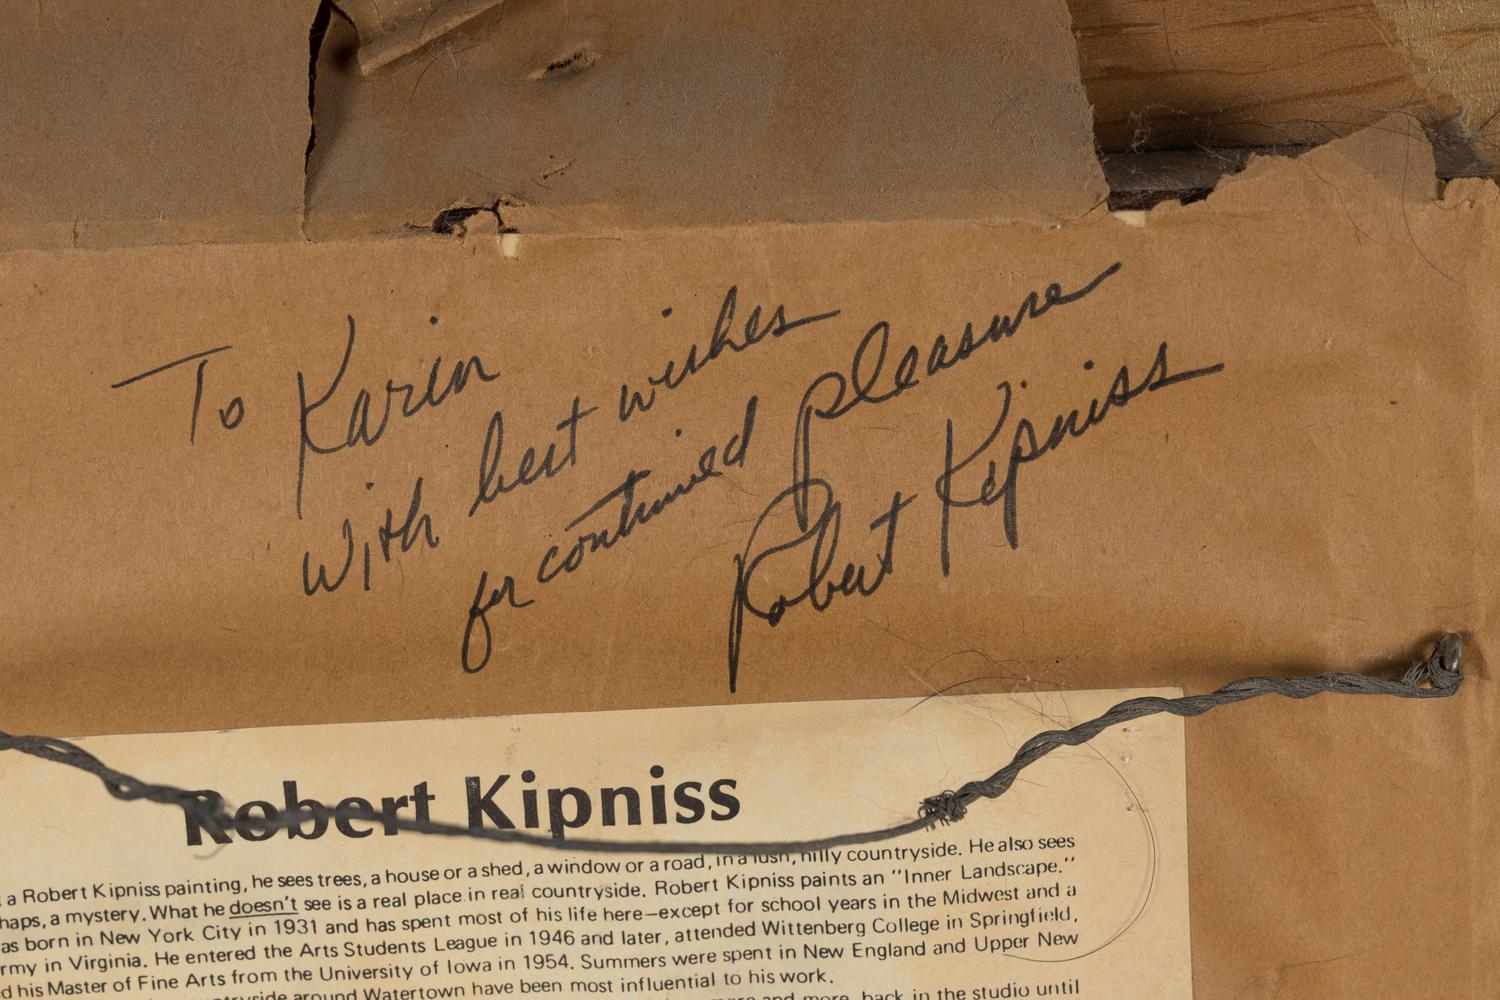 To Karin
With best wishes
for continued pleasure
Robert Kipniss
Robert Kipniss
a Robert Kipniss painting, he sees trees, a house or a shed, a window or a road, in a lush, hilly countryside. He also sees
haps, a mystery. What he doesn't see is a real place in real countryside. Robert Kipniss paints an "Inner Landscape."
as born in New York City in 1931 and has spent most of his life here—except for school years in the Midwest and a
rmy in Virginia. He entered the Arts Students League in 1946 and later, attended Wittenberg College in Springfield,
d his Master of Fine Arts from the University of Iowa in 1954. Summers were spent in New England and Upper New
countryside around Watertown have been most influential to his work.
more and more, back in the studio until